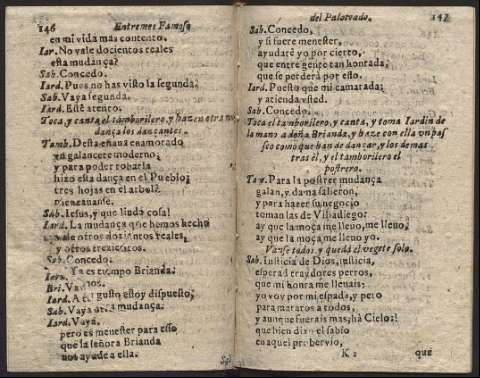 146 Entremes Famoso
en mi vida mas contento.
Iar. No vale docientos reales
esta mudança?
Sab. Concedo.
Iard. Pues no has visto la segunda?
Sab. Vaya segunda.
Iard. Esté atento.
Toca, y canta el tamborilero, y hazen otra mu
dança los dançantes.
Tamb. Desta enamorado
vn galancete moderno;
y para poder robarla
hizo esta dança en el Pueblo;
tres hojas en el arbol?
meneanse.
Sab. Iesus, y que linda cosa!
Iard. La mudança que hemos hecho
vale otros docientos reales,
y otros trecientos.
Sab. Concedo.
Iard. Ya es tiempo Brianda.
Bri. Vamos.
Iard. A tu gusto estoy dispuesto;
Sab. Vaya otra mudança.
Iard. Vaya,
pero es menester para esso
que la señora Brianda
nos ayude a ella.
Sab
del Paloteado. 147
Sab. Concedo,
y si fuere menester,
ayudaré yo por cierto,
que entre gente tan honrada,
que se perderá por esso.
Iard. Puesto que mi camarada;
y atienda vsted.
Sab. Concedo.
Toca el tamborilero, y canta, y toma Iardin de
la mano a doña Brianda, y haze con ella vn pas
seo como que han de dançar, y los demas
tras él, y el tamborilero el
postrero.
Para la postrer mudança
galan, y dama salieron,
y para hazer su negocio
toman las de Villadiego:
ay que la moça me lleuo, me lleuo,
ay que la moça me lleuo yo.
Vanse todos, y queda el vegete solo.
Sab. Iusticia de Dios, iusticia,
esperad traydores perros,
que mi honra me lleuais:
yo voy por mi espada, y peto
para mataros a todos,
y aunque fuerais mas, há Cielo!
que bien dixo el sabio
en aquel prouervio,
K 2 que